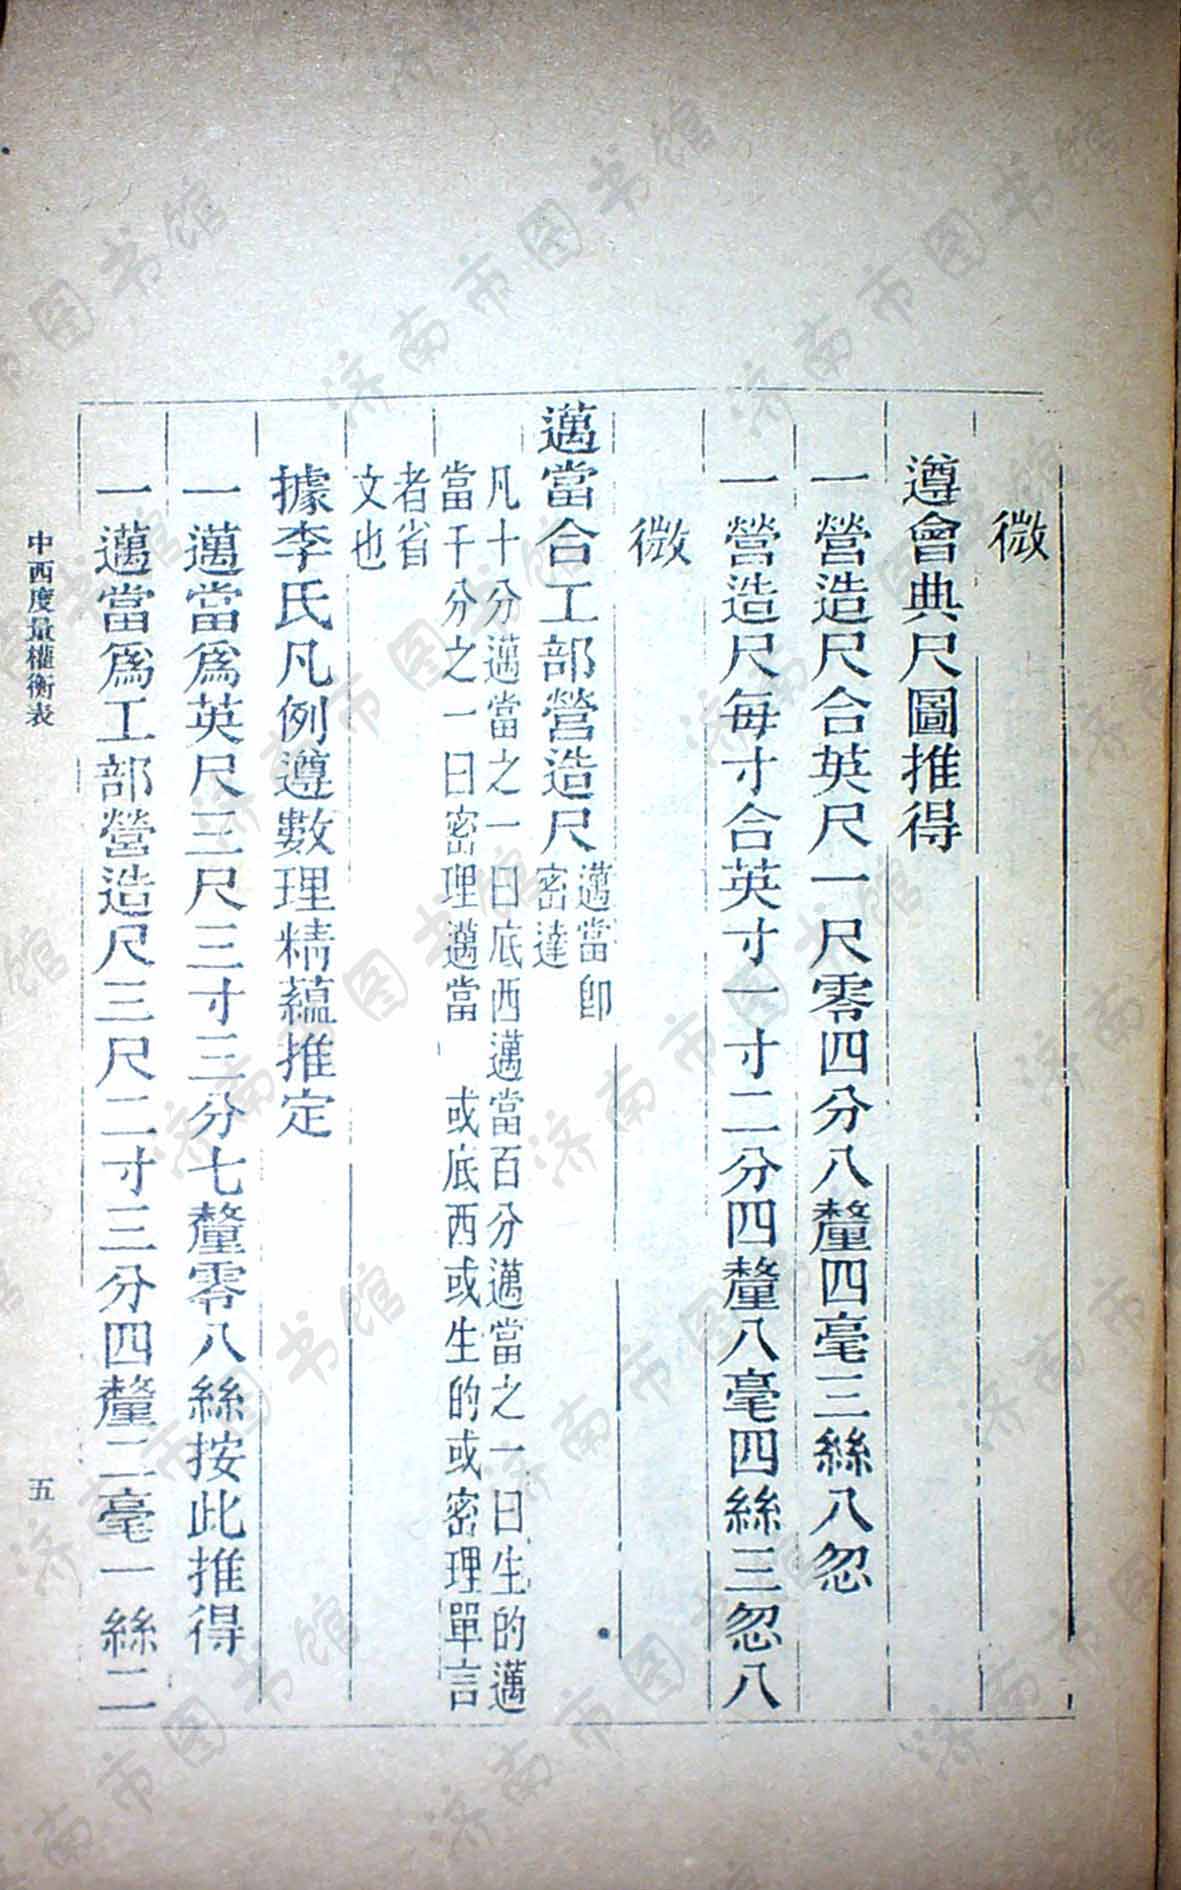 微
遵會典尺圖推得
一營造尺合英尺一尺零四分八釐四毫三絲八忽
一營造尺每寸合英寸一寸二分四釐八毫四絲三忽八
微
邁當合工部營造尺邁當卽
密達
凡十分邁當之一曰底西邁當百分邁當之一曰生的邁
當千分之一曰密理邁當 或底西或生的或密理單言
者省
文也
據李氏凡例遵數理精蘊推定
一邁當爲英尺三尺三寸三分七釐零八絲按此推得
一邁當爲工部營造尺三尺二寸三分四釐二毫一絲二
中西度量權衡表
五
济南市图书馆